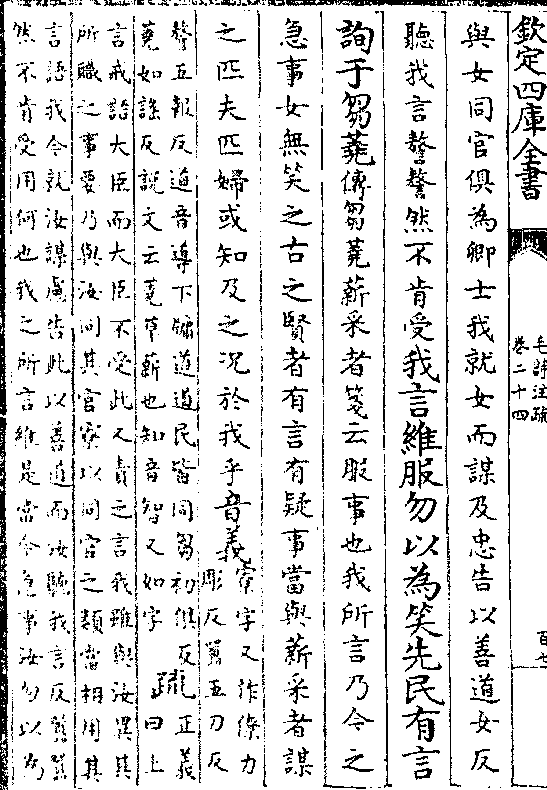 欽定四庫全書
毛詩注疏
卷二十四
與女同官俱為卿士我就女而謀及忠告以善道女反
聽我言謷謷然不肯受我言維服勿以為笑先民有言
詢于芻蕘傳芻蕘薪采者箋云服事也我所言乃今之
急事女無笑之古之賢者有言有疑事當與薪采者謀
之匹夫匹婦或知及之況於我乎音義寮字又作僚力
彫反嚻五刀反
謷五報反道音導下牖道道民皆同芻初俱反
蕘如謠反說文云蕘草薪也知音智又如字 疏正義
曰上
言戒詒大臣而大臣不受此又責之言我雖與汝異其
所職之事要乃與汝同其官寮以同官之類當相用其
言語我今就汝謀慮告此以善道而汝聽我言反嚻嚻
然不肯受用何也我之所言維是當今急事汝勿以為